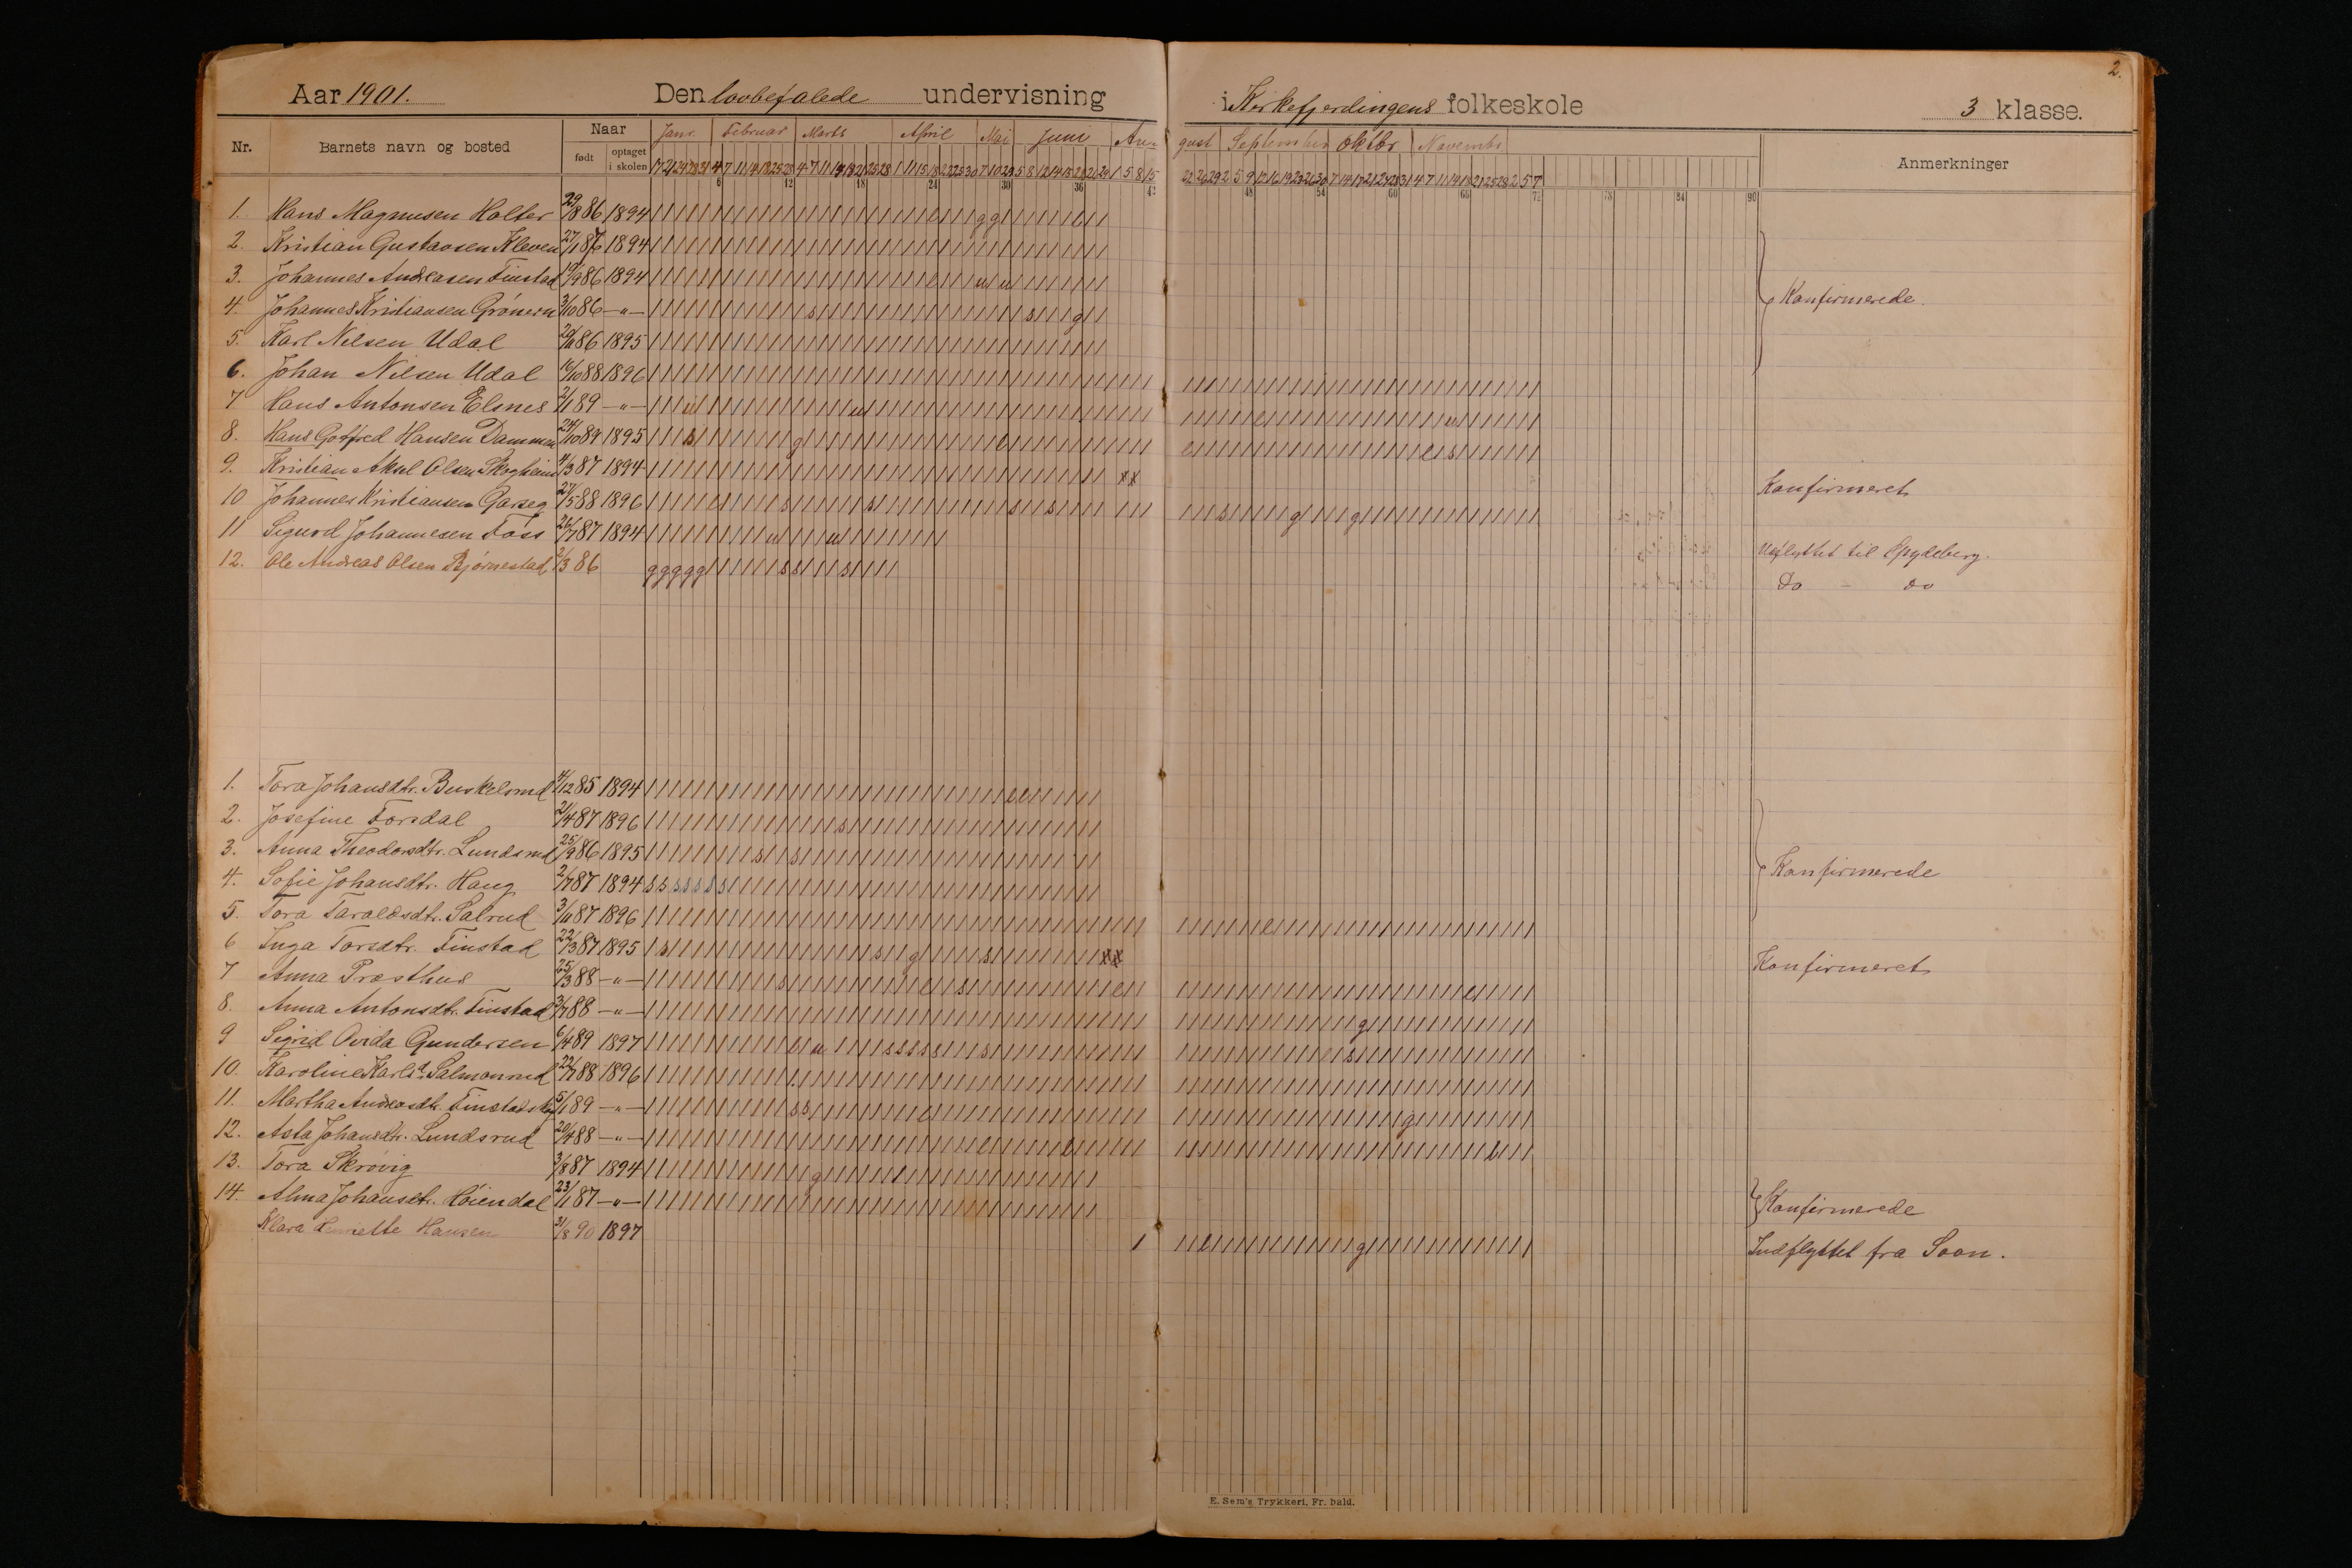 2.
Aar 1901. Den lovbefalede undervisning i Kirkefjerdingens folkeskole 3 klasse.
Nr. Barnets navn og bosted Naar født optaget i skolen Janr. Februar Marts April Mai Juni August September Oktbr Novembr Anmerkninger
6 12 18 24 30 36 42 48 54 60 66 72 78 84 90
1. Hans Magnusen Holter 29/8 86 1894
2. Kristian Gustavsen Kleven 27/1 87 1894
3. Johannes Andreasen Finstad 19/9 86 1894
4. Johannes Kristiansen Grönern 3/10 86 —"— Konfirmerede.
5. Karl Nilsen Udal 20/11 86 1895
6. Johan Nilsen Udal 16/10 88 1896
7 Hans Antonsen Elsnes 2/1 89 —"—
8. Hans Gotfred Hansen Dammen 24/10 89 1895
9. Kristian Aksel Olsen Skogheim 4/3 87 1894 Konfirmeret
10 Johannes Kristiansen Garseg 27/5 88 1896
11 Sigurd Johannesen Foss 26/7 87 1894 Udflyttet til Spydeberg.
12. Ole Andreas Olsen Bjørnestad 2/3 86 Do - do
1. Tora Johansdtr. Buskelsrud 4/12 85 1894
2. Josefine Torsdal 21/4 87 1896
3. Anna Theodorsdtr. Lundsrud 25/9 86 1895
4. Sofie Johansdtr. Haug 2/7 87 1894 Konfirmerede
5. Tora Taraldsdtr. Salrud 3/11 87 1896
6 Inga Torsdtr. Finstad 22/3 87 1895 Konfirmeret
7 Anna Præsthus 25/3 88 —"—
8. Anna Antonsdtr. Finstad 3/7 88 —"—
9 Sigrid Ovida Gundersen 6/4 89 1897
10. Karoline Karlsd. Salmonrud 22/7 88 1896
11. Martha Andreasdtr. Finstadskog 5/1 89 —"—
12. Asta Johansdtr. Lundsrud 20/4 88 —"—
13. Tora Skrövig 3/8 87 1894
14. Alma Johansdtr. Höiendal 23/1 87 —"— Konfirmerede
Klara Henriette Hansen 31/8 90 1897 Indflyttet fra Soon.
E. Sem's Trykkeri, Fr. hald.